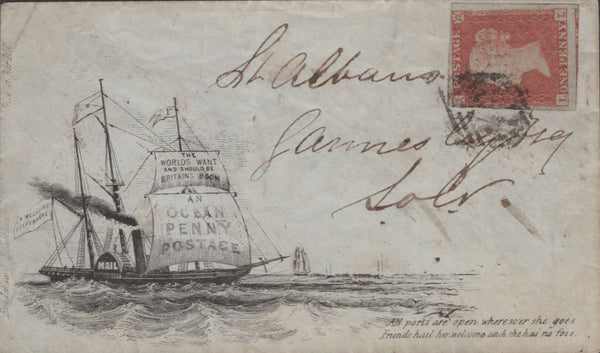 POSTAGE
ONE PENNY
St Albans
Solr.
THE
WORLDS WANT
AND SHOULD BE
BRITAINS BOON
AN
OCEAN
PENNY
POSTAGE
MAIL
All ports are open wheresoe'er she goes
Friends hail her welcome and she has no foes.